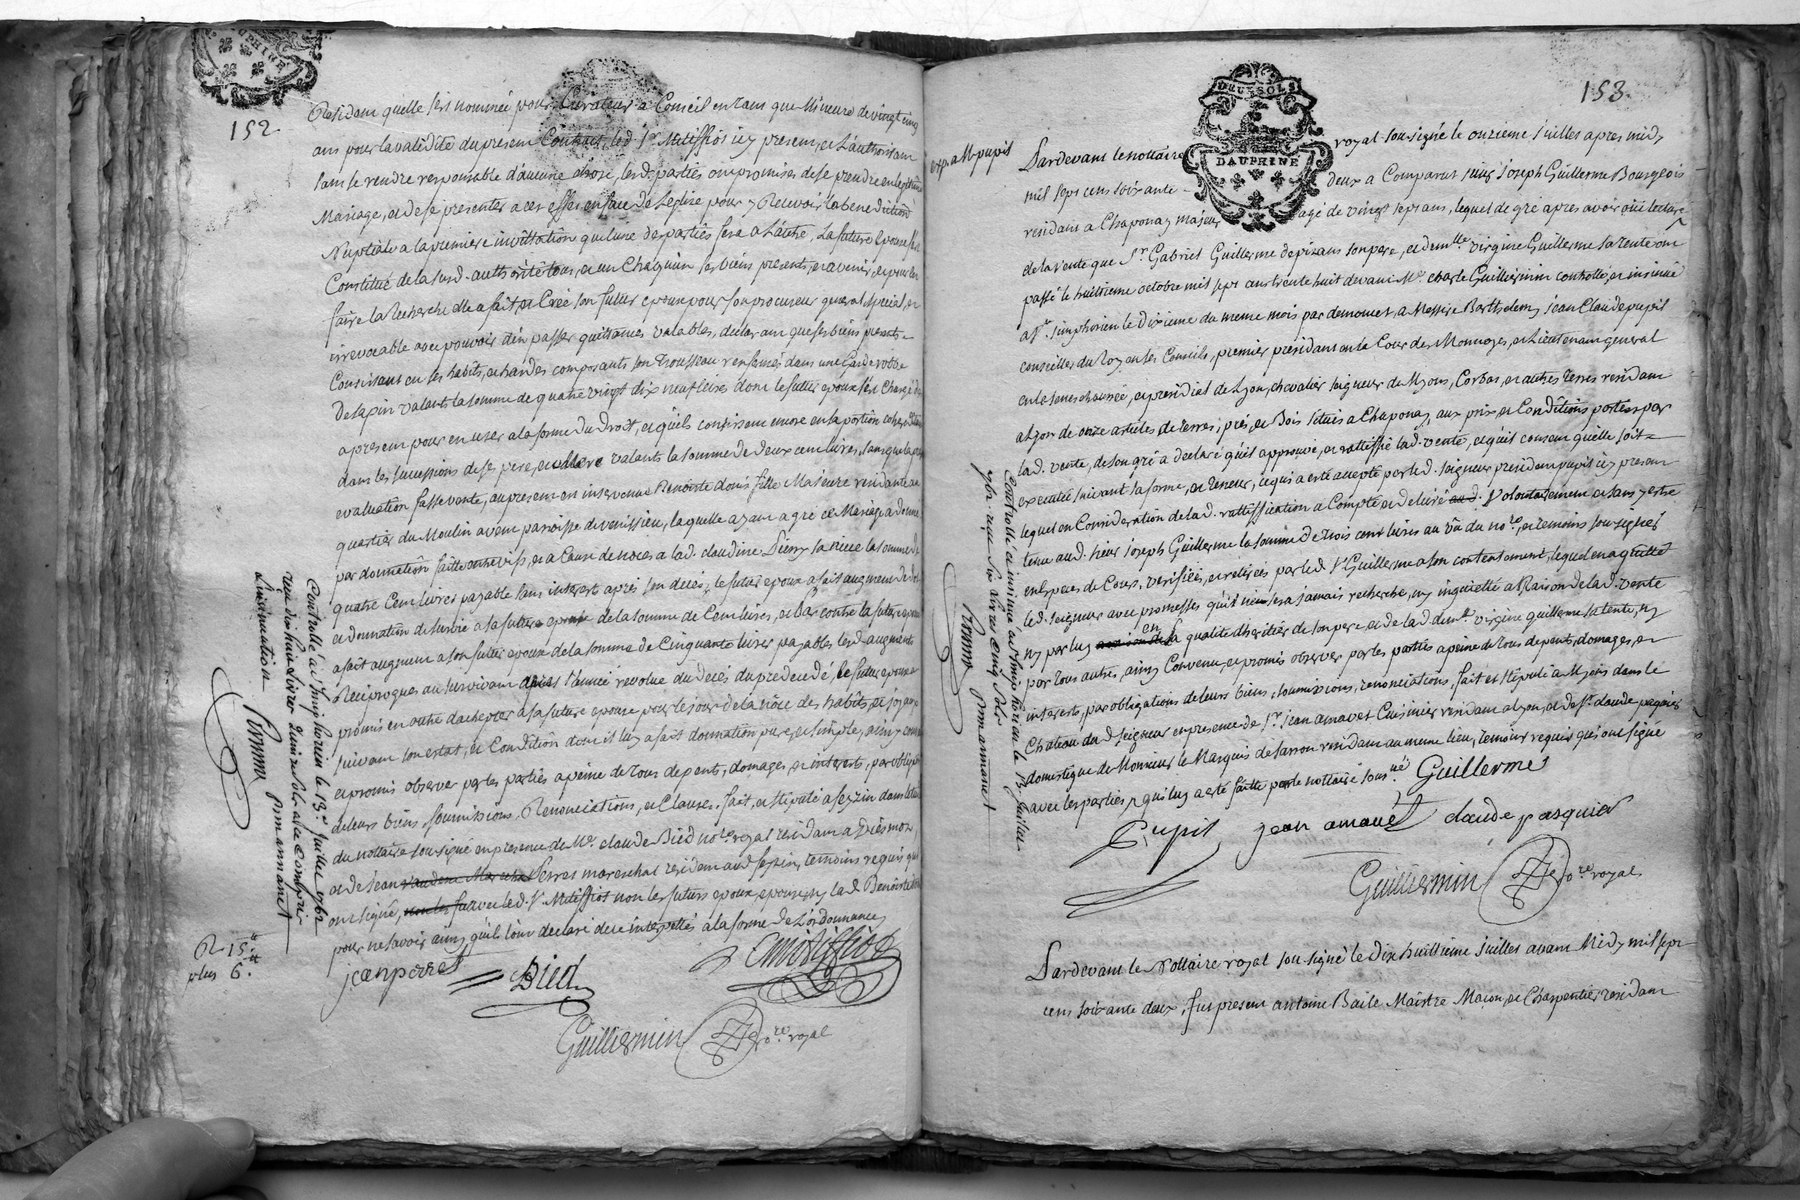 152
Residam quelle s'est nommée pour Curateur a Conseil en tans que Mineure de vingt cinq
ans pour la validité du presem Contrat, led. Sr. Mitiffiot icy presem, et L'authorisam
sans se rendre responsable d'aucune chose, lesd. parties ont promises de se prendre en legitime
Mariage, et de se presenter a cet effet en face de L'eglise pour y Recevoir la benediction
Nuptiale a la premiere invittation que l'une des parties fera a L'autre, La future Epouse s'est
Constitué de la susd. authorité tous, et un Chaquun ses biens presents, et avenir, et pour en
faire la Recherche elle a fait, et Créé son futur epoux pour son procureur general special, et
irrevocable avec pouvoir d'en passer quittances valables, declaram que ses biens presents
Consistent en ses habits, et hardes composants son Trousseau renfermés dans une Garderobbe
de sapin valants la somme de quatre vingt dix neuf livres dont le futur epoux s'est Chargé
apresem pour en user a la forme du Droit, et quils consistem encore en sa portion
dans les successions de ses pere, et mere valants la somme de deux cem livres, sans que la
evaluation fasse vente, au presem est intervenue Benoiste donis fille Majeure residante au
quartier du Moulin avem paroisse de venissieu, laquelle ayam agré ce Mariage a donné
par donnation faitte entre vifs, et a Cause de noces a lad. claudine sa niece la somme de
quatre Cem livres payable sans interest après son decés; le futur epoux a fait augmem de dot
et donnation de survie a sa future epouse de la somme de Cem livres, et Par contre la future epouse
a fait augmem a son futur epoux de la somme de Cinquante livres payables lesd. augments
Reciproques au survivam apres l'année revolue du decés, du predecedé, le futur epoux a
promis en outre d'achepter a sa future epouse pour le jour de la nôce des habits, et joyaux
suivam son estat, et Condition dom il luy a fait donnation pure, et simple, ainsy convenu
et promis observer par les parties a peine de tous depents, domages, et interets, par obligation
de leurs biens soumissions, Renonciations, et Clauses, fait, et stipulé a sezzin dans l'etude
du nottaire sousigné en presence de Me. claude Bied nore. royal residam a
et de Jean Perres mareschal residem aud. sezzin, temoins requis qui
ont signé, avec led. Sr. Mitiffiot non les futurs epoux epouse, ny lad. Benoiste
pour ne savoir ainsy quils l'ont declaré de ce interpellés a la forme de L'ordonnance
jean perre
Bied
C mitiffiot
Guilliermin
nore. royal
Controllé a st. simphorien le 13e. juillet 1762
reçu dix huit Livres
L'insinuation
R. 15
plus 6.
153
exp. a M. pupil
DEUX SOLS
DAUPHINE
Pardevant le nottaire royal sousigné le onzieme juillet apres midy
mil sept cens soixante deux a Comparut sieur joseph Guillerme Bourgeois
residant a Chaponay majeur agé de vingt sept ans, lequel de gré apres avoir ouie lecture
de la vente que Sr. Gabriel Guillerme de pizans son pere, et demlle. virgine Guillerme sa tente ont
passé le huittieme octobre mil sept cens trente huit devant Me. charle Guilliermin controllé, et insinué
a St. simphorien le Dixieme du meme mois par demomet a Messire Barthelemy jean Claude pupil
conseiller du Roy en ses Conseils, premier presidans en la Cour des Monnoyes, et Lieutenam general
en la senechaussée, et presidial de Lyon, chevalier seigneur de Myons, Corbas, et autres terres residam
a Lyon de onze articles de terres, prés, et Bois situés a Chaponay aux prix, et Conditions portées par
lad. vente, de son gré a declaré qu'il approuve, et rattiffie lad. vente, et qu'il consem qu'elle soit
executée suivant sa forme, et teneur, ce qui a eté accepté par led. seigneur presidem pupil icy presem
lequel en Consideration de lad. rattiffication a Compté et delivré aud. volontairement et sans y estre
tenu aud. sieur joseph Guillerme la somme de trois cent livres au vû du nore., et temoins sousignés
en Especes de Cours, verifiée, et retirée par led. Sr. Guillerme a son contentement, lequel en a quitté
led. seigneur avec promesses qu'il n'en sera jamais recherché, ny inquietté a Raison de lad. vente
ny par luy en sa qualité d'heritier de son pere et de lad. demlle. virgine guillerme sa tente, ny
par tous autres, ainsy Convenu, et promis observer par les parties a peine de tous depents, domages, et
interests, par obligations de leurs biens, soumissions, renonciations, fait et stipulé a Myons dans le
Chateau dud. seigneur en presence de Sr. jean amavet Cuisinier residam a Lyon, et de Sr. claude pasquier
domestique de Monsieur le Marquis de sasson residam au meme lieu, temoins requis qui ont signé
avec les parties a eté faitte par le nottaire sousné. Guillerme
Pupil
jean amavet
claude pasquier
Guilliermin
nore. royal
Controllé et insinué a st. simphorien le 13. juillet
1762. reçu
Pardevant le Nottaire royal sousigné le dix huittieme juillet avant Midy mil sept
cens soixante deux, fut present antoine Baile Maistre Maçon, et Charpentier, residam